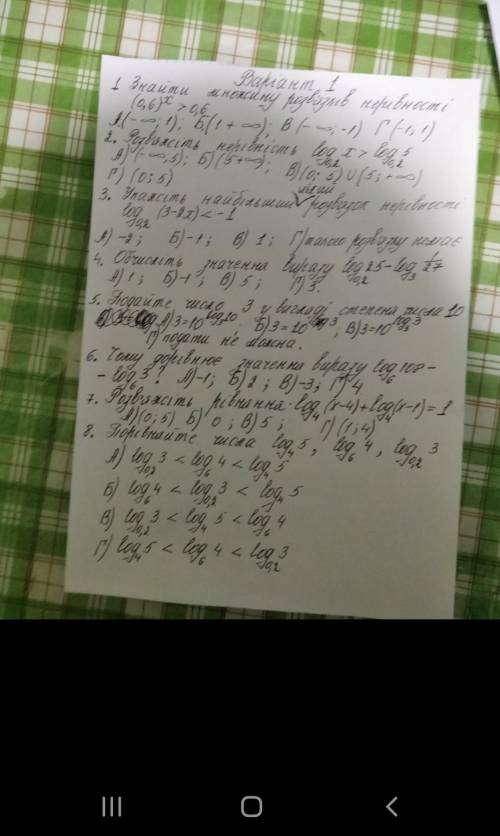 Варіант 1
1 Знайти множину розвязків нерівності
(0,6)^x > 0,6
А(-∞; 1); Б.(1 +∞); В(-∞; -1) Г(-1; 1)
2. Розвяжіть нерівність log_0,2 x > log_0,2 5
А) (-∞; 5); Б) (5 +∞); В) (0; 5) ∪ (5; +∞)
Г) (0; 5)
цілий
3. Укажіть найбільший ✓ розвязок нерівності
log_0,2 (3-2x) < -1
А) -2; Б) -1; В) 1; Г) такого розвязку немає
4. Обчисліть значення виразу log_0,2 25 - log_3 1/27
А) 1; Б) -1; В) 5; Г) 3.
5. Подайте число 3 у вигляді степеня числа 10
А) 3=10^log_3 10; Б) 3=10^lg 3; В) 3=10^log_3 3
Г) подати не можна.
6. Чому дорівнює значення виразу log_6 108 -
- log_6 3? А) -1; Б) 2; В) -3; Г) 4
7. Розвяжіть рівняння log_4 (x-4) + log_4 (x-1) = 1
А) (0; 5) Б) 0; В) 5; Г) (1; 4)
8. Порівняйте числа log_4 5, log_6 4, log_0,2 3
А) log_0,2 3 < log_6 4 < log_4 5
Б) log_6 4 < log_0,2 3 < log_4 5
В) log_0,2 3 < log_4 5 < log_6 4
Г) log_4 5 < log_6 4 < log_0,2 3